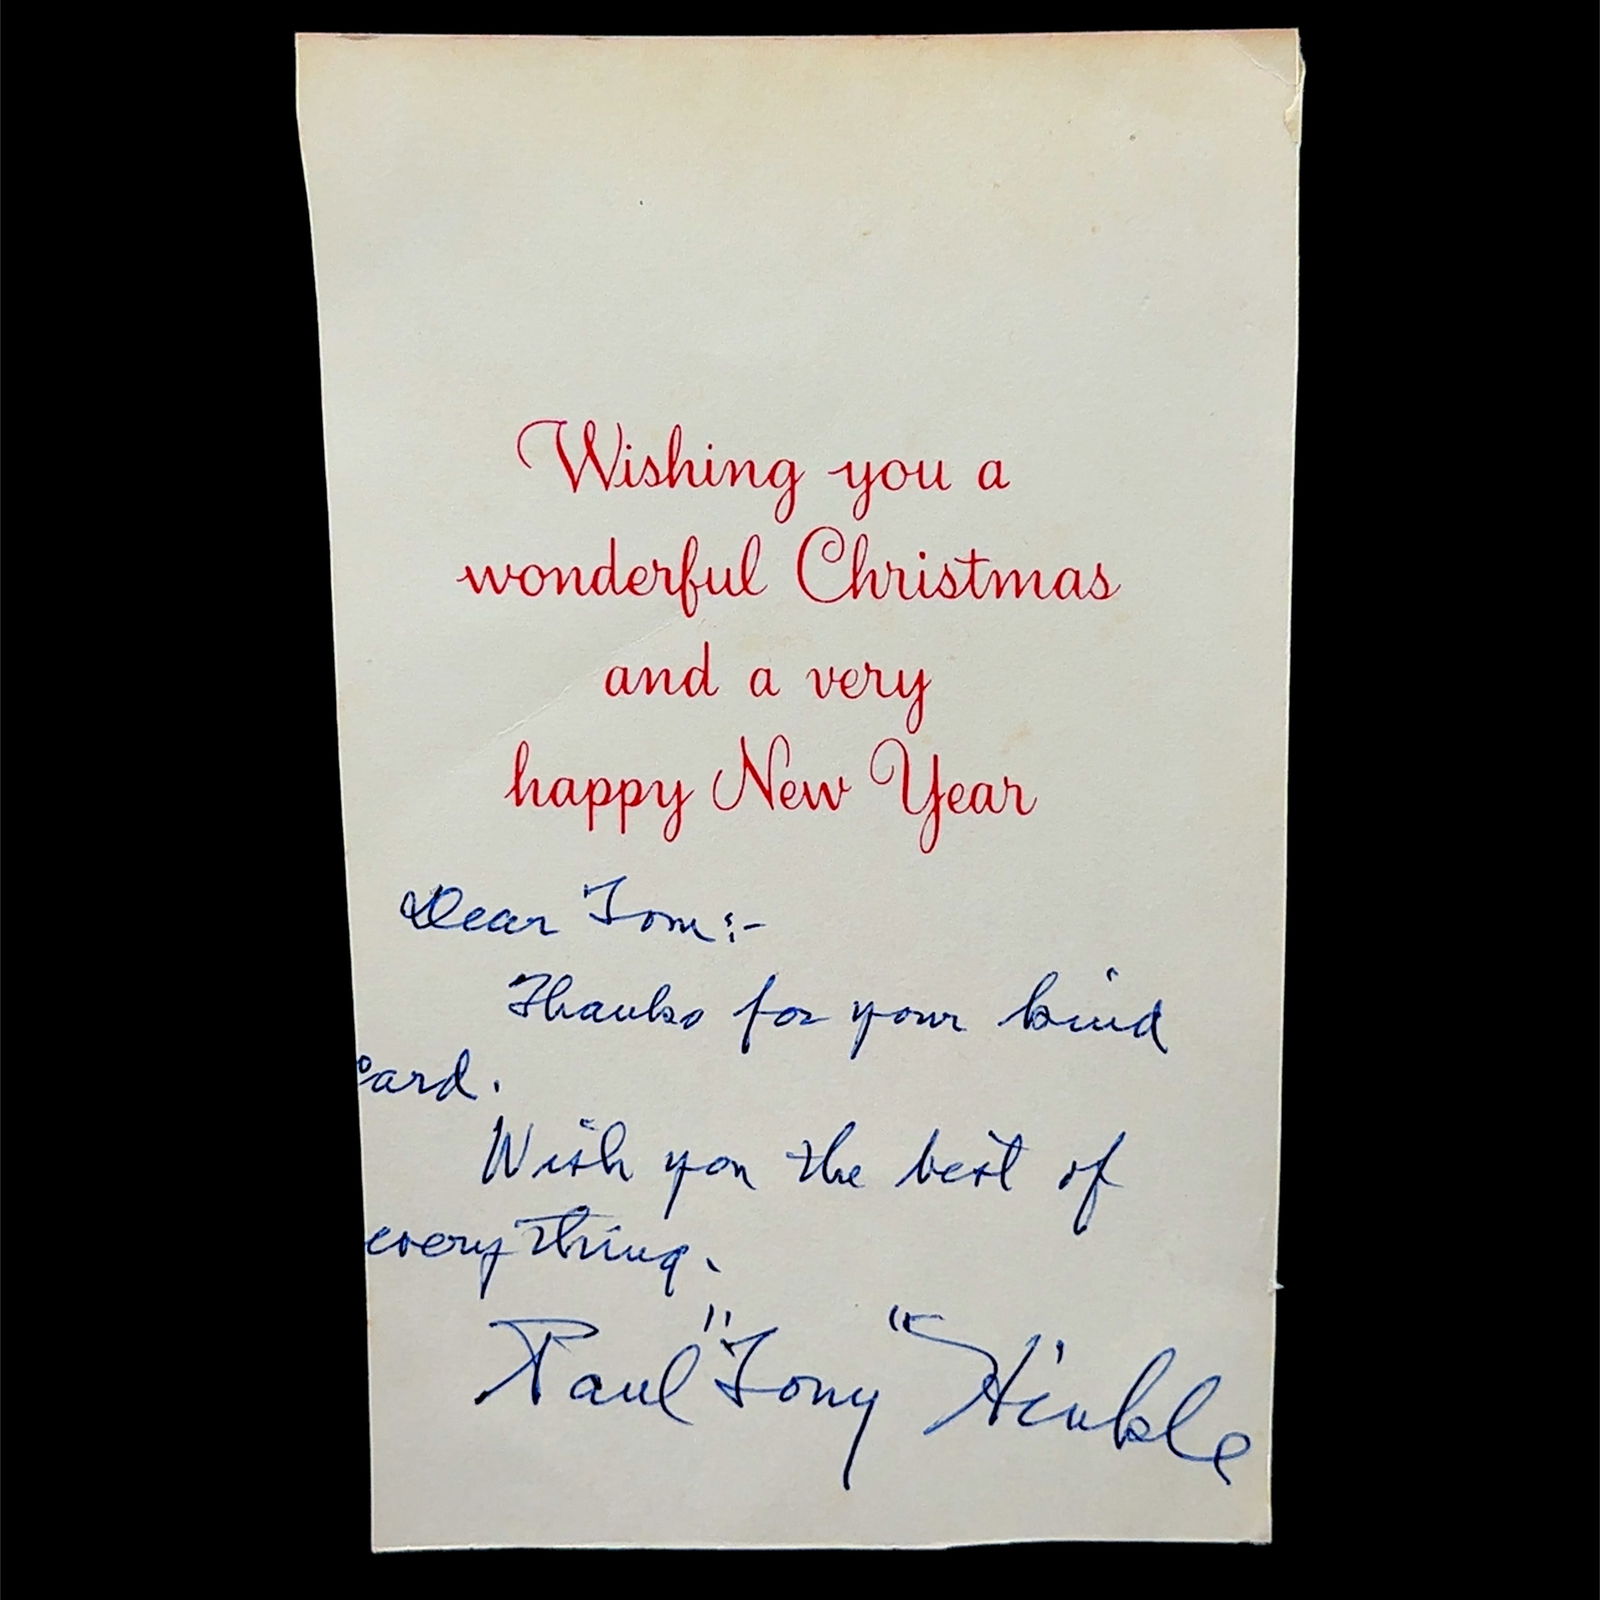 Wishing you a
wonderful Christmas
and a very
happy New Year
Dear Tom:-
Thanks for your kind
card.
Wish you the best of
everything.
Paul "Tony" Hinkle